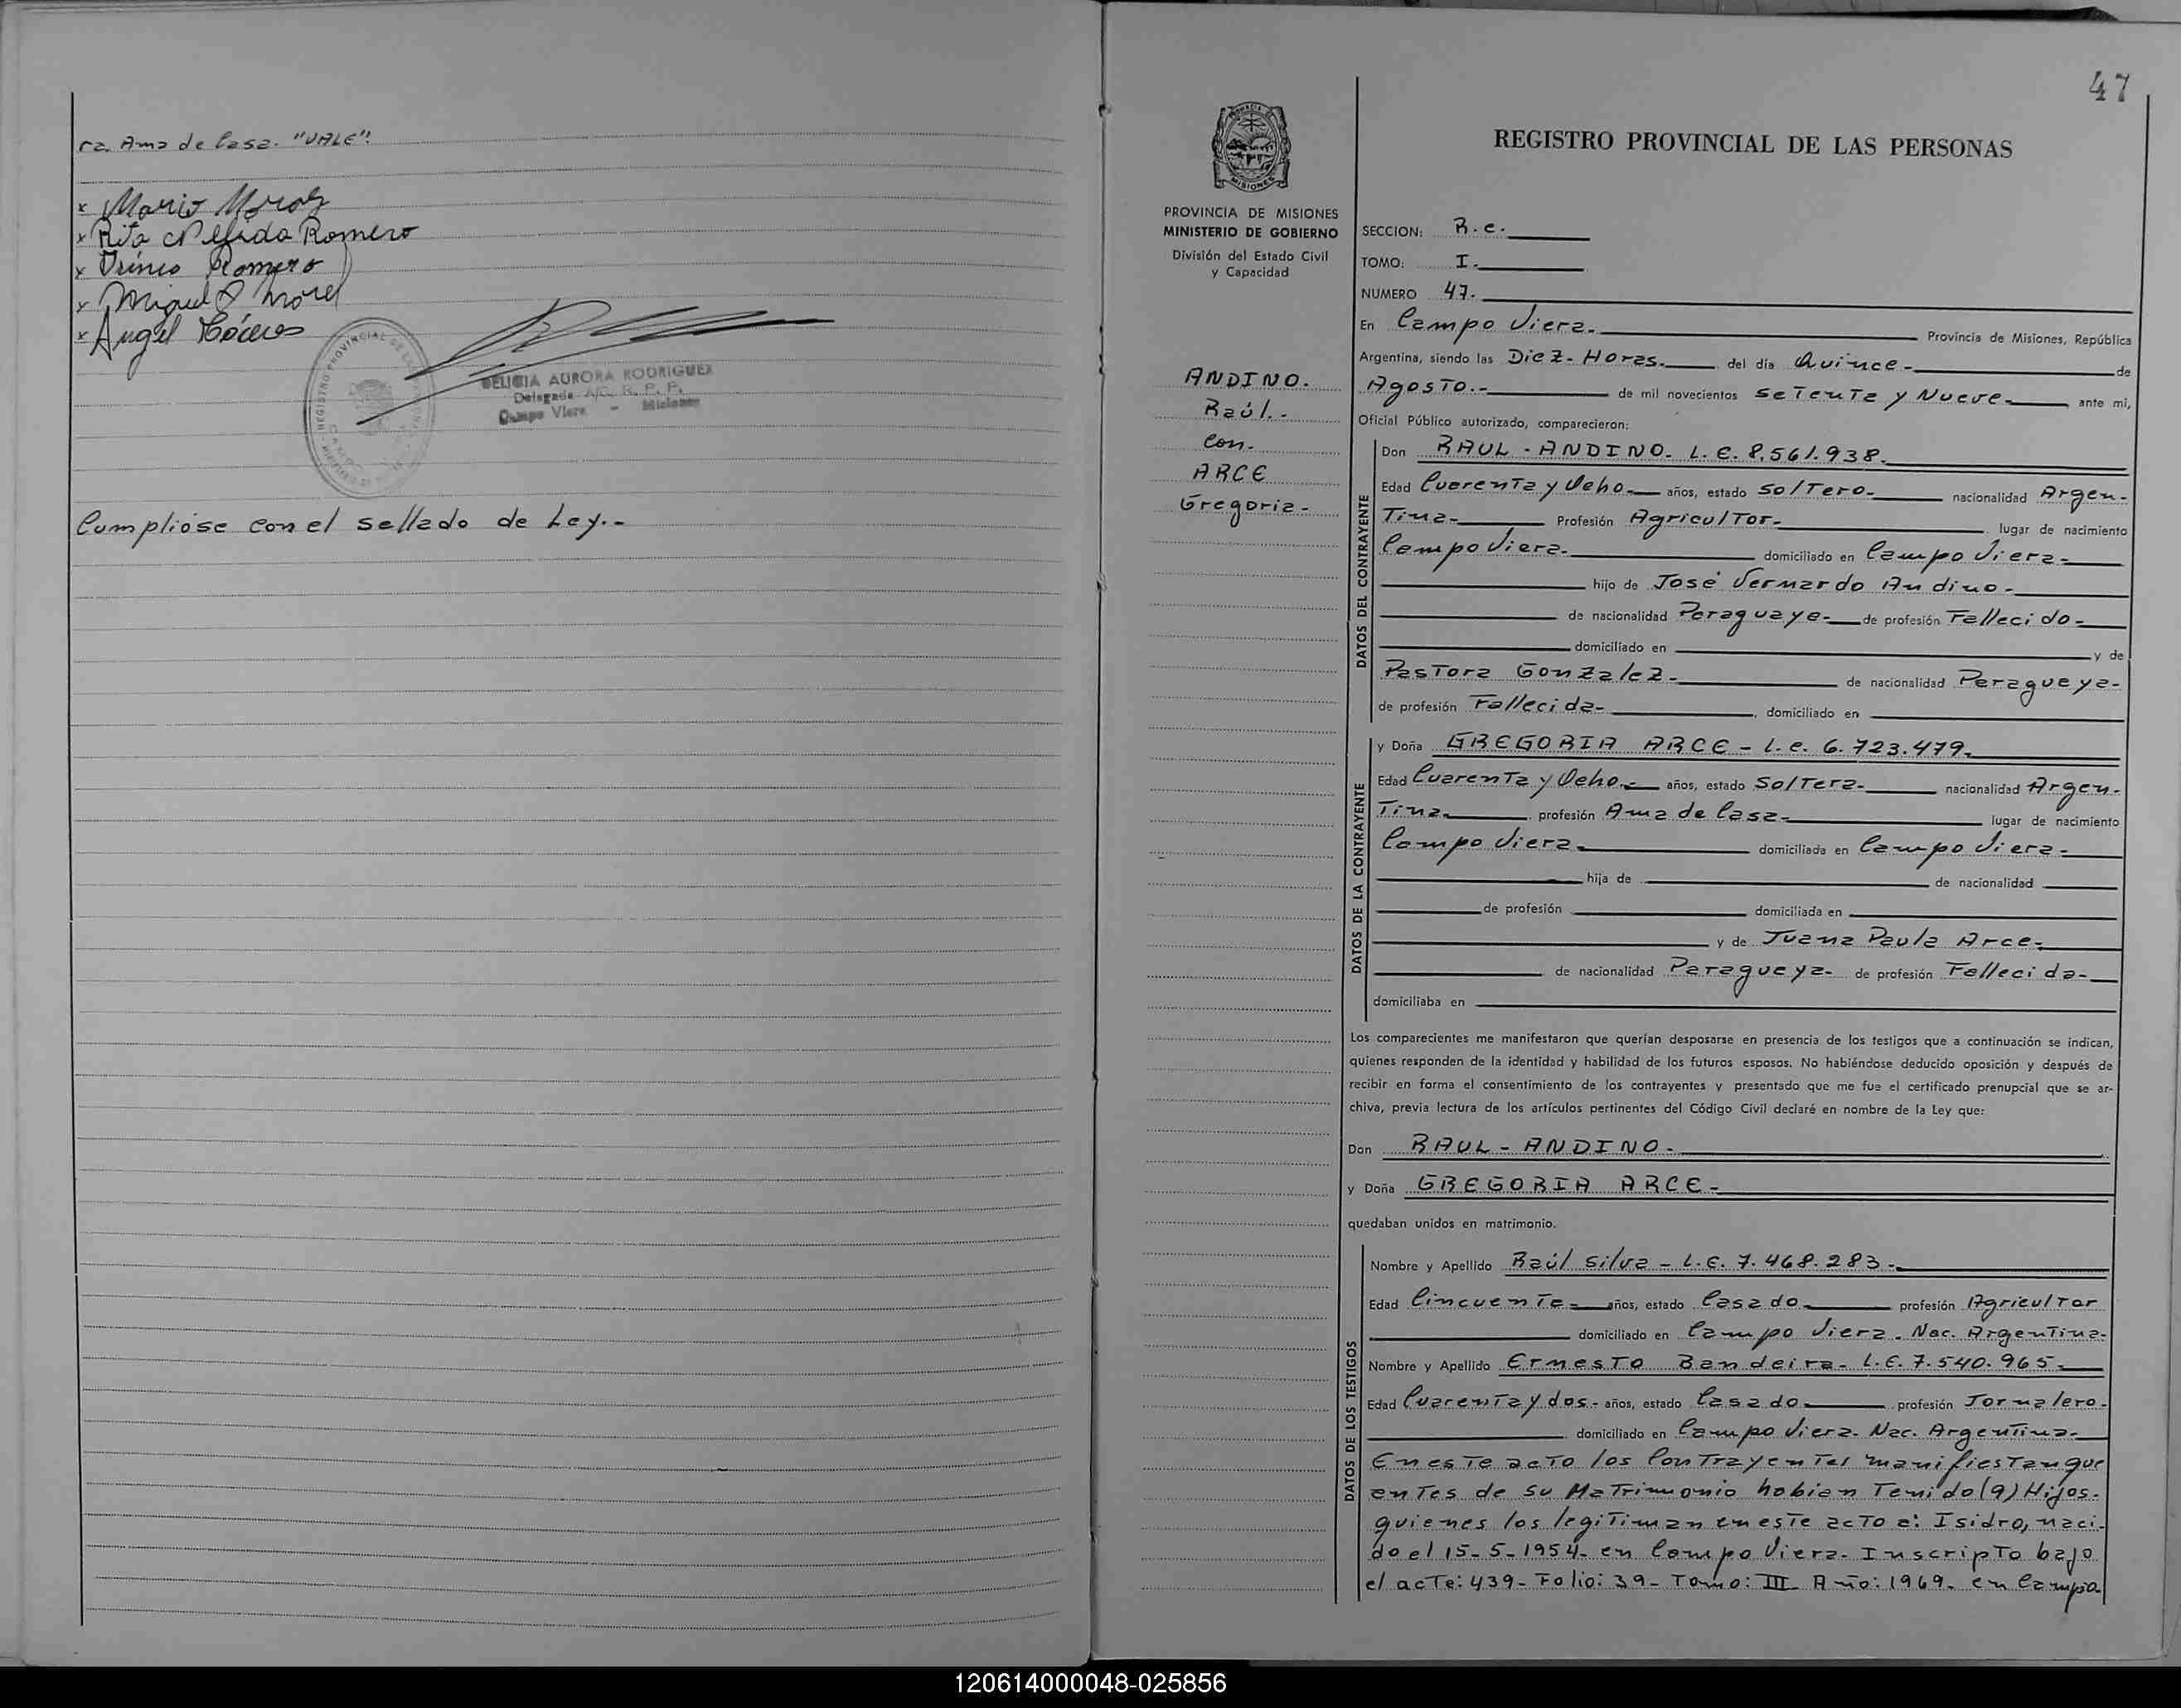 ra. Ama de Casa. "VALE".
x Mario
x Rita Romero
x Romero
x Miguel
x Angel
REGISTRO PROVINCIAL DE
DELICIA AURORA RODRIGUEZ
Delegada A/C. R. P. P.
Campo Viera - Misiones
Cumplióse con el sellado de Ley.-
47
MISIONES
PROVINCIA DE MISIONES
MINISTERIO DE GOBIERNO
División del Estado Civil
y Capacidad
ANDINO.
Raúl.-
Con.
ARCE
Gregoria-
REGISTRO PROVINCIAL DE LAS PERSONAS
SECCION: R.C.
TOMO: I.
NUMERO 47.
En Campo Viera. Provincia de Misiones, República
Argentina, siendo las Diez-Horas. del día Quince- de
Agosto.- de mil novecientos setenta y Nueve- ante mi,
Oficial Público autorizado, comparecieron:
DATOS DEL CONTRAYENTE
Don RAUL - ANDINO. L.E. 8.561.938.
Edad Cuarenta y Ocho- años, estado Soltero- nacionalidad Argen-
tina- Profesión Agricultor- lugar de nacimiento
Campo Viera- domiciliado en Campo Viera-
hijo de José Vernardo Andino-
de nacionalidad Paraguaya- de profesión Fallecido-
domiciliado en y de
Pastora Gonzalez- de nacionalidad Paraguaya-
de profesión Fallecida- , domiciliado en
DATOS DE LA CONTRAYENTE
y Doña GREGORIA ARCE - L.C. 6.723.479.
Edad Cuarenta y Ocho- años, estado Soltera- nacionalidad Argen-
tina- profesión Ama de Casa- lugar de nacimiento
Campo Viera- domiciliada en Campo Viera-
hija de de nacionalidad
de profesión domiciliada en
y de Juana Paula Arce-
de nacionalidad Paraguaya- de profesión Fallecida-
domiciliaba en
Los comparecientes me manifestaron que querían desposarse en presencia de los testigos que a continuación se indican,
quienes responden de la identidad y habilidad de los futuros esposos. No habiéndose deducido oposición y después de
recibir en forma el consentimiento de los contrayentes y presentado que me fue el certificado prenupcial que se ar-
chiva, previa lectura de los artículos pertinentes del Código Civil declaré en nombre de la Ley que:
Don RAUL - ANDINO-
y Doña GREGORIA ARCE-
quedaban unidos en matrimonio.
DATOS DE LOS TESTIGOS
Nombre y Apellido Raúl Silva - L.E. 7.468.283-
Edad Cincuenta- años, estado Casado- profesión Agricultor
domiciliado en Campo Viera. Nac. Argentina-
Nombre y Apellido Ernesto Bandeira- L.E. 7.540.965-
Edad Cuarenta y dos- años, estado Casado- profesión Jornalero-
domiciliado en Campo Viera- Nac. Argentina-
En este acto los Contrayentes manifiestan que
antes de su Matrimonio habian Tenido (9) Hijos.
quienes los legitiman en este acto a: Isidro, naci-
do el 15-5-1954- en Campo Viera- Inscripto bajo
el acte: 439- Folio: 39- Tomo: III Año: 1969- en Campo
120614000048-025856